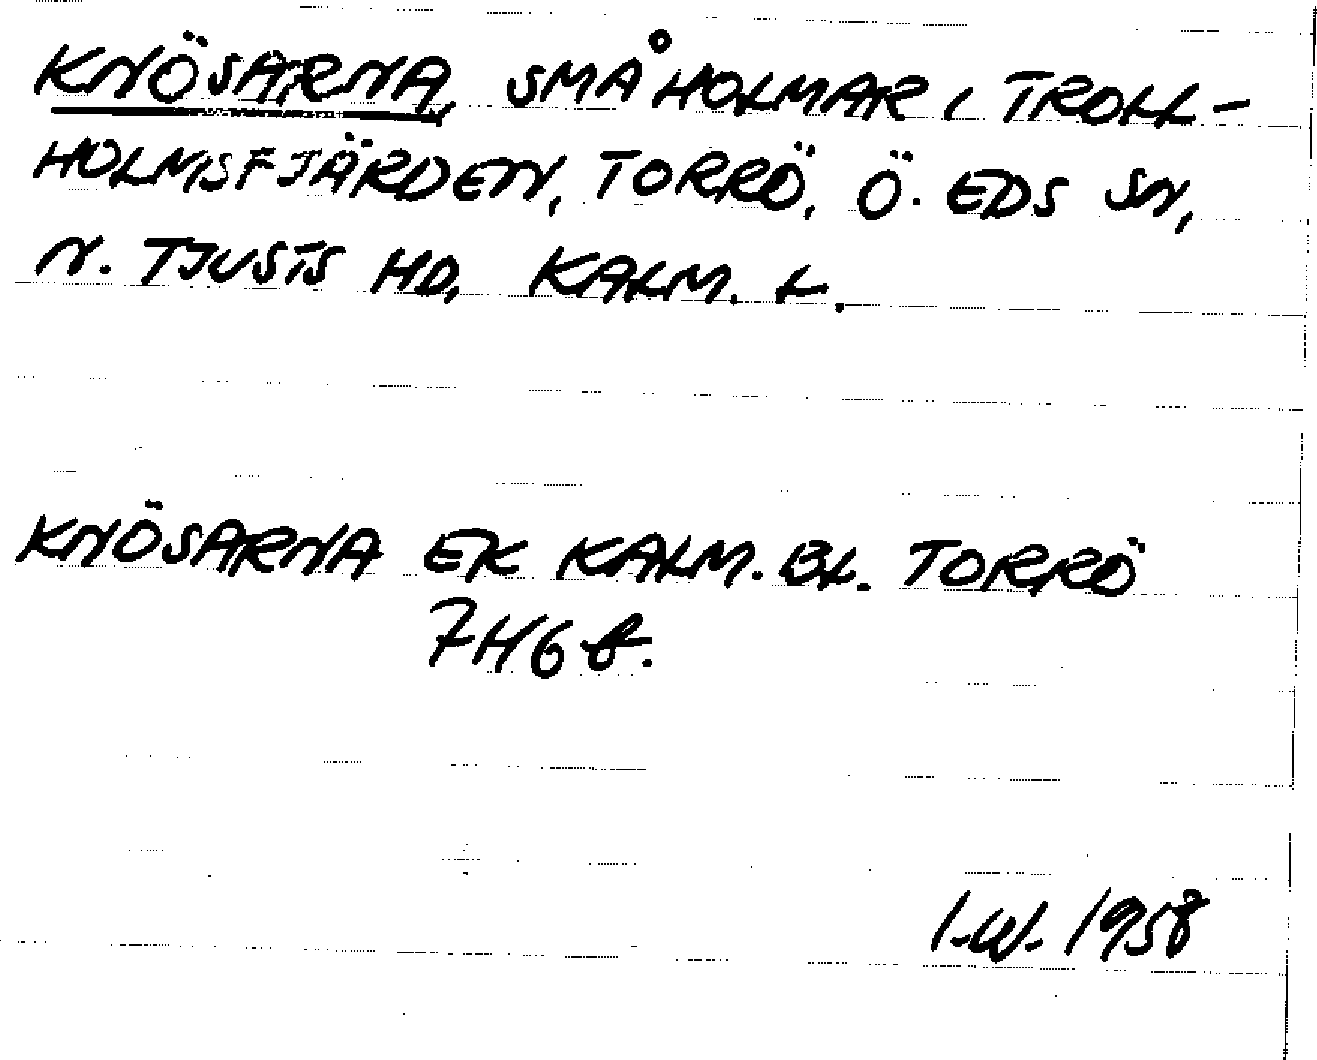 KNÖSARNA, SMÅHOLMAR I TROLL-
HOLMSFJÄRDEN, TORRÖ, Ö. EDS SN,
N. TJUSTS HD, KALM. L.
KNÖSARNA EK KALM. BL. TORRÖ
7H6f.
I.W. 1958